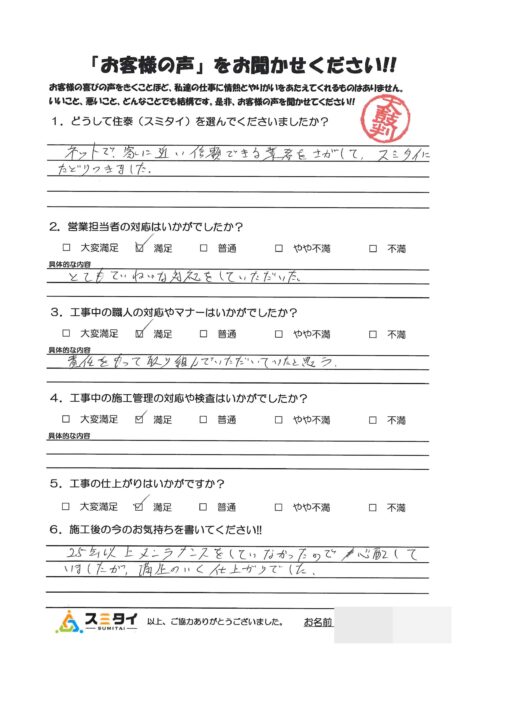 「お客様の声」をお聞かせください!!
お客様の喜びの声をきくことほど、私達の仕事に情熱とやりがいをあたえてくれるものはありません。
いいこと、悪いこと、どんなことでも結構です。是非、お客様の声を聞かせてください!!
太鼓判
1．どうして住泰（スミタイ）を選んでくださいましたか？
ネットで、家に近い信頼できる業者をさがして、スミタイに
たどりつきました.
2．営業担当者の対応はいかがでしたか？
☐ 大変満足 ☑ 満足 ☐ 普通 ☐ やや不満 ☐ 不満
具体的な内容
とてもていねいな対応をしていただいた、
3．工事中の職人の対応やマナーはいかがでしたか？
☐ 大変満足 ☑ 満足 ☐ 普通 ☐ やや不満 ☐ 不満
具体的な内容
責任をもって取り組んでいただいていたと思う.
4．工事中の施工管理の対応や検査はいかがでしたか？
☐ 大変満足 ☑ 満足 ☐ 普通 ☐ やや不満 ☐ 不満
具体的な内容
5．工事の仕上がりはいかがですか？
☐ 大変満足 ☑ 満足 ☐ 普通 ☐ やや不満 ☐ 不満
6．施工後の今のお気持ちを書いてください!!
25年以上メンテナンスをしていなかったので心配して
いましたが、満足のいく仕上がりでした.
スミタイ SUMITAI 以上、ご協力ありがとうございました。 お名前